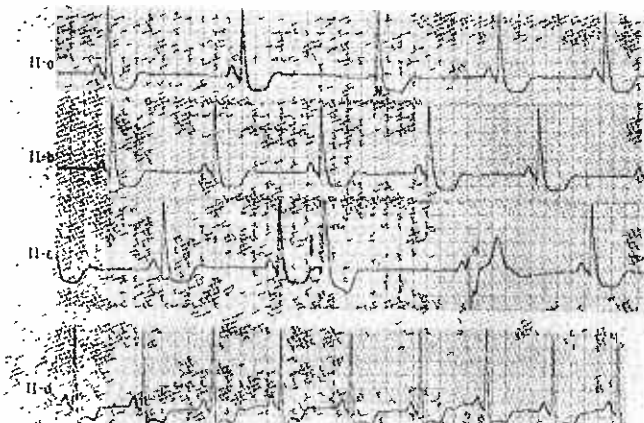 II-a
II-b
II-c
II-d